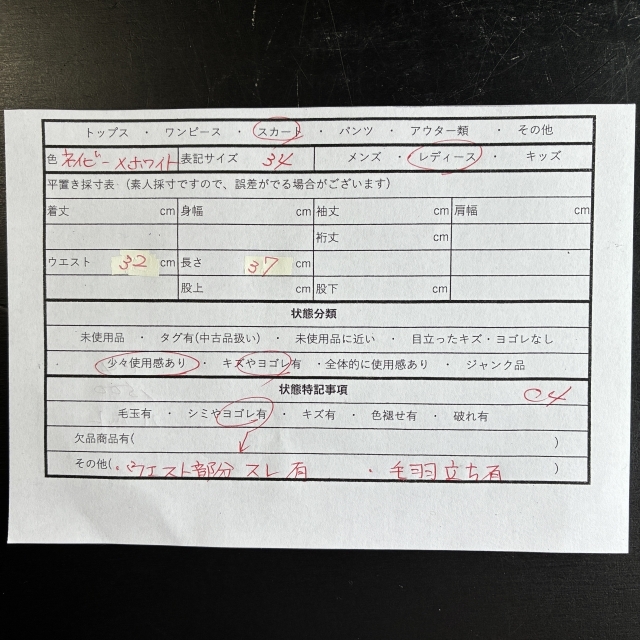 トップス ・ ワンピース ・ スカート ・ パンツ ・ アウター類 ・ その他
色 ネイビー×ホワイト 表記サイズ 34 メンズ ・ レディース ・ キッズ
平置き採寸表 (素人採寸ですので、誤差がでる場合がございます)
着丈 cm 身幅 cm 袖丈 cm 肩幅 cm
裄丈 cm
ウエスト 32 cm 長さ 37 cm
股上 cm 股下 cm
状態分類
未使用品 ・ タグ有(中古品扱い) ・ 未使用品に近い ・ 目立ったキズ・ヨゴレなし
・ 少々使用感あり ・ キズやヨゴレ有 ・全体的に使用感あり ・ ジャンク品
状態特記事項 04
毛玉有 ・ シミやヨゴレ有 ・ キズ有 ・ 色褪せ有 ・ 破れ有
欠品商品有( )
その他(・ウエスト部分 スレ 有 ・ 毛羽立ち有 )